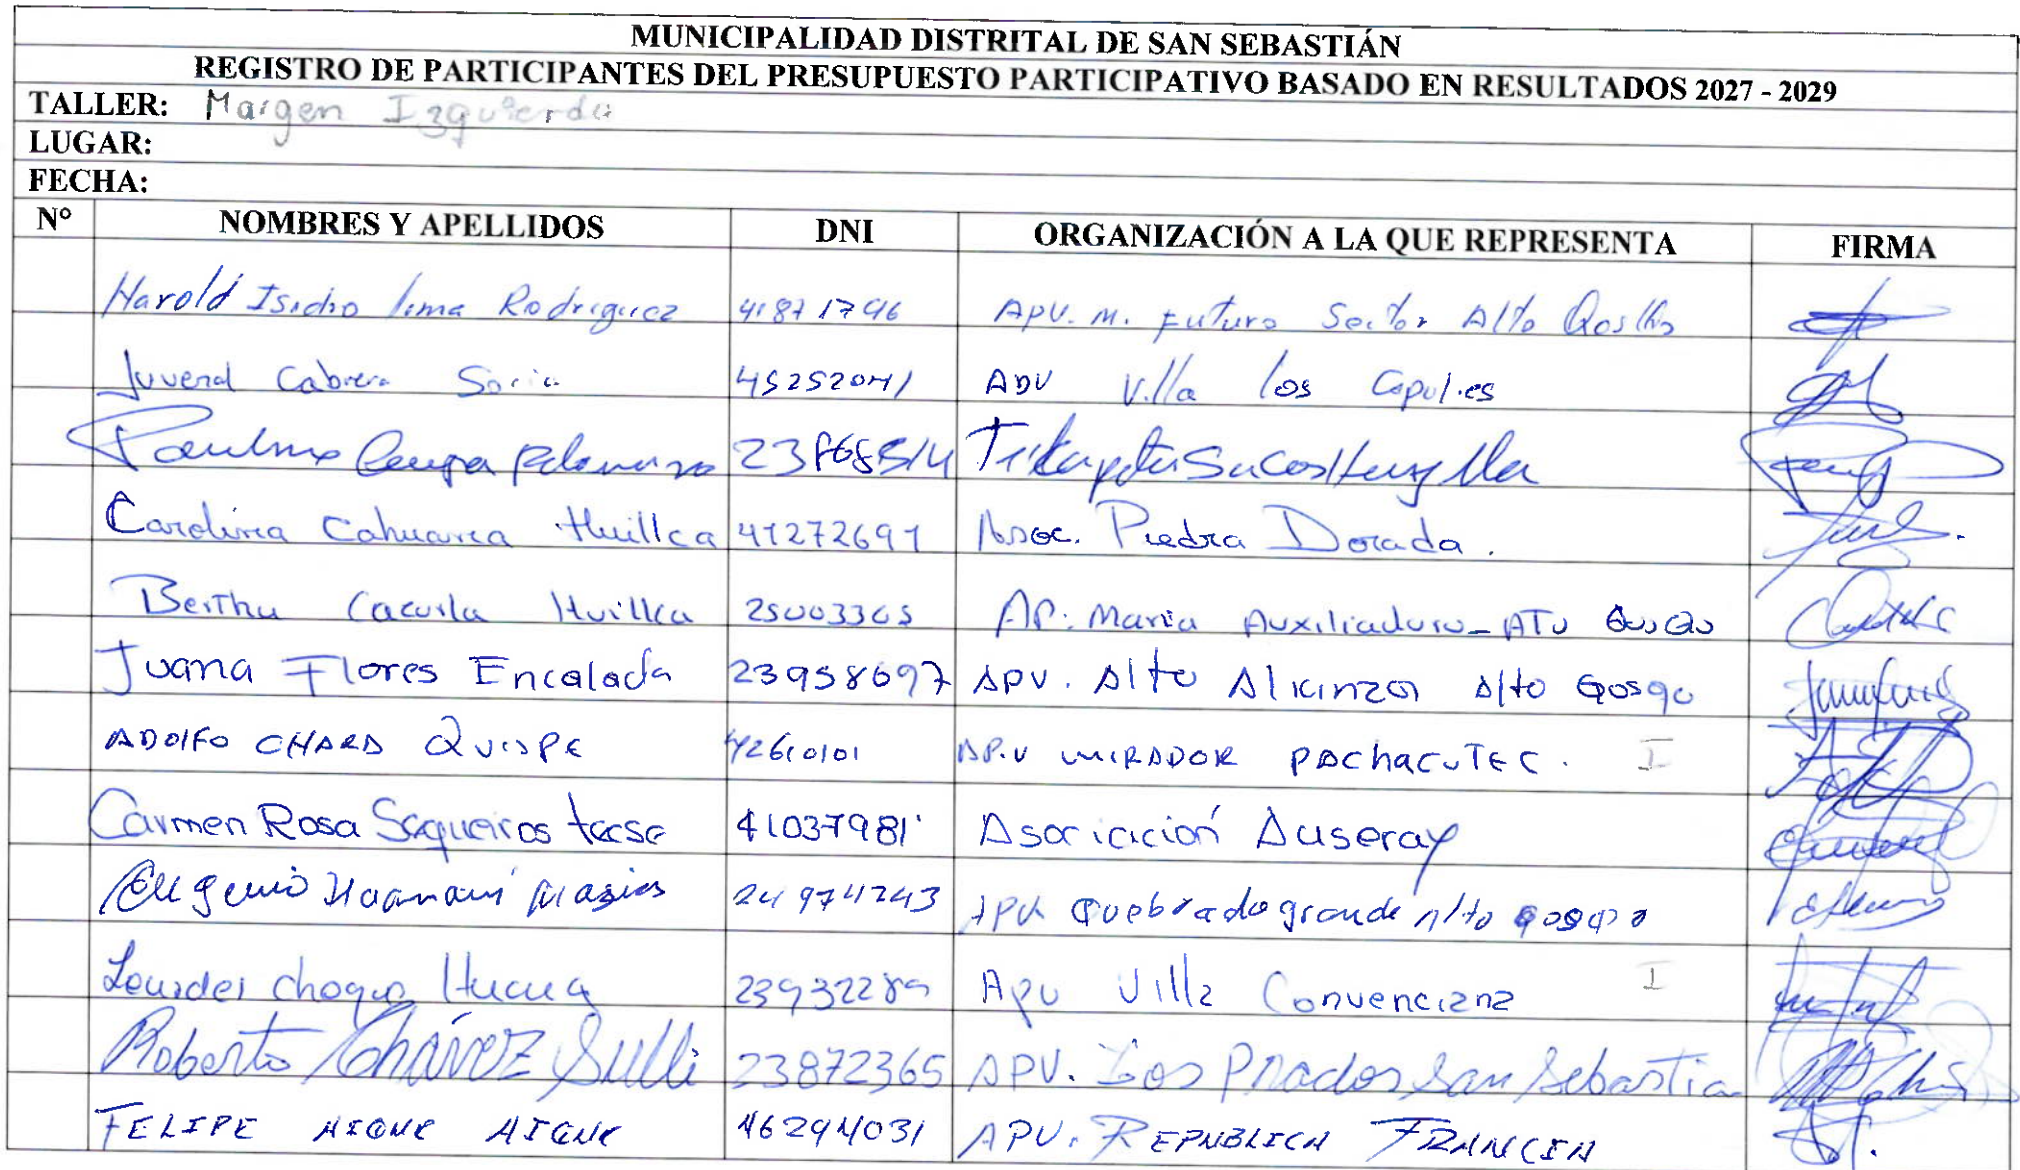 MUNICIPALIDAD DISTRITAL DE SAN SEBASTIÁN
REGISTRO DE PARTICIPANTES DEL PRESUPUESTO PARTICIPATIVO BASADO EN RESULTADOS 2027 - 2029
TALLER: Margen Izquierda
LUGAR:
FECHA:
N° NOMBRES Y APELLIDOS DNI ORGANIZACIÓN A LA QUE REPRESENTA FIRMA
Harold Isidro lima Rodriguez 41871746 APV. M. Futuro Sector Alto
Juvenal Cabrera Soria 45252041 ADV Villa los Capulies
Paulino
Carolina Cahuana Huillca 41272691 Asoc. Piedra Dorada.
Bertha Huillca 25003365 AP. Maria Auxiliadora
Juana Flores Encalada 23958697 APV. Alto Alto Qosqo
ADOLFO QUISPE 42610101 AP.V MIRADOR PACHACUTEC. I
Carmen Rosa Sequeiros 41037981 Asociación Auseray
Eugenio Huamani 24974243 APV Quebrada grande Alto Qosqo
Lourdes choque 23932289 Apv Villa Convenciana I
Roberto Chávez Sulli 23872365 APV. Los Prados San Sebastian
FELIPE 46294031 APV. REPUBLICA FRANCIA